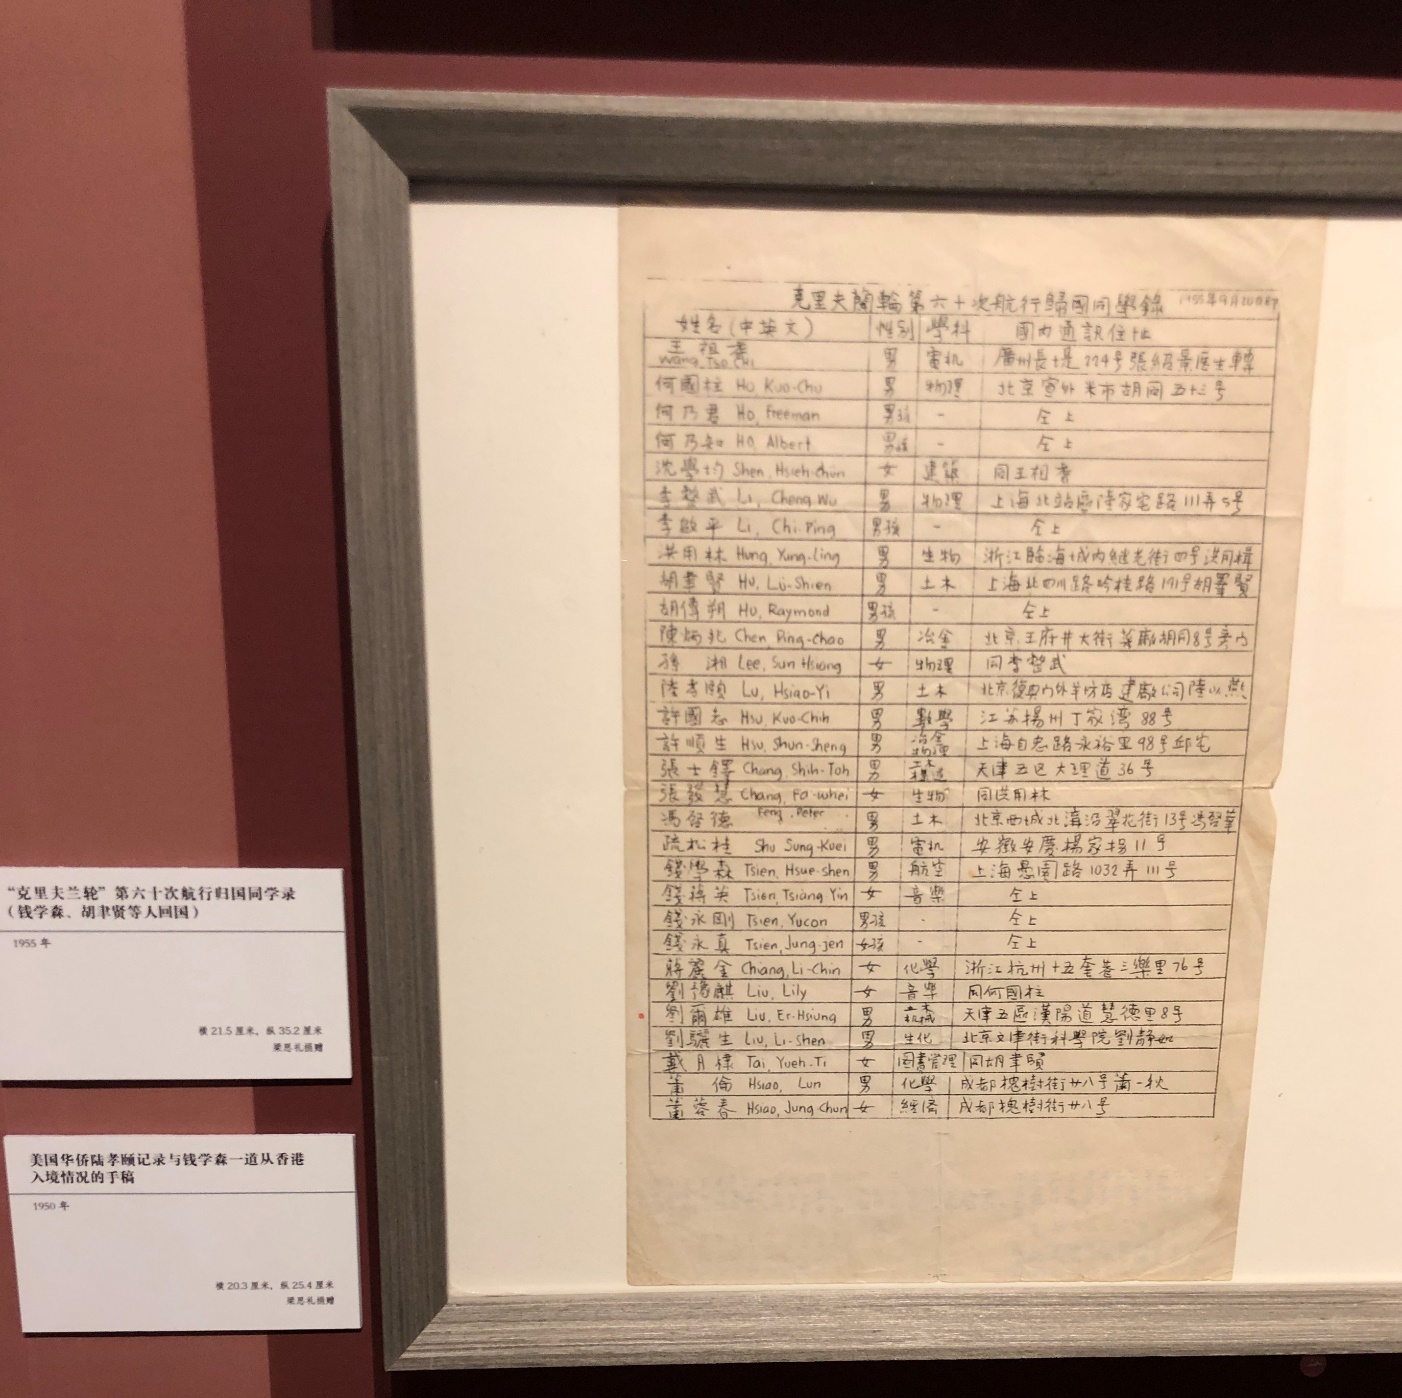 克里夫蘭輪第六十次航行歸國同學錄 1955年9月20日
姓名(中英文) 性別 學科 國內通訊住址
王祖耆 Wang, Tso Chi 男 電机 廣州長堤774号張紹景医生轉
何國柱 Ho Kuo-Chu 男 物理 北京宣外米市胡同五十三号
何乃君 Ho, Freeman 男孩 - 仝上
何乃知 Ho, Albert 男孩 - 仝上
沈學均 Shen, Hsieh-chün 女 建築 同王祖耆
李整武 Li, Cheng Wu 男 物理 上海北站區陸家宅路111弄5号
李啟平 Li, Chi-Ping 男孩 - 仝上
洪用林 Hung, Yung-Ling 男 生物 浙江臨海城內继光街四号洪用楫
胡聿賢 Hu, Lü-Shien 男 土木 上海北四川路吟桂路191号胡聿賢
胡傳朔 Hu, Raymond 男孩 - 仝上
陳炳兆 Chen, Ping-Chao 男 冶金 北京王府井大街 胡同8号
孫湘 Lee, Sun Hsiang 女 物理 同李整武
陸孝頤 Lu, Hsiao-Yi 男 土木 北京復興门外羊坊店建廠公司陸以
許國志 Hsu, Kuo-Chih 男 數學 江苏揚州丁家湾88号
許順生 Hsu, Shun-Sheng 男 冶金物理 上海自忠路永裕里98号邱宅
張士鐸 Chang, Shih-Toh 男 土木構造 天津五区大理道36号
張發慧 Chang, Fa-whei 女 生物 同洪用林
馮啓德 Feng, Peter 男 土木 北京西城北溝沿翠花街13号馮啓華
疏松桂 Shu Sung-Kuei 男 電机 安徽安慶楊家拐11号
錢學森 Tsien, Hsue-shen 男 航空 上海愚園路1032弄111号
錢蔣英 Tsien, Tsiang Yin 女 音樂 仝上
錢永剛 Tsien, Yucon 男孩 - 仝上
錢永真 Tsien, Jung-jen 女孩 - 仝上
蔣麗金 Chiang, Li-Chin 女 化學 浙江杭州十五奎巷三樂里76号
劉豫麒 Liu, Lily 女 音樂 同何國柱
劉爾雄 Liu, Er-Hsiung 男 土木机械 天津五區漢陽道慧德里8号
劉驪生 Liu, Li-Shen 男 生化 北京文津街科學院劉静如
戴月棣 Tai, Yueh-Ti 女 圖書管理 同胡聿賢
蕭倫 Hsiao, Lun 男 化學 成都槐樹街廿八号蕭一秋
蕭蓉春 Hsiao, Jung-Chun 女 經濟 成都槐樹街廿八号
“克里夫兰轮”第六十次航行归国同学录
（钱学森、胡聿贤等人回国）
1955 年
横 21.5 厘米，纵 35.2 厘米
梁思礼捐赠
美国华侨陆孝颐记录与钱学森一道从香港
入境情况的手稿
1950 年
横 20.3 厘米，纵 25.4 厘米
梁思礼捐赠